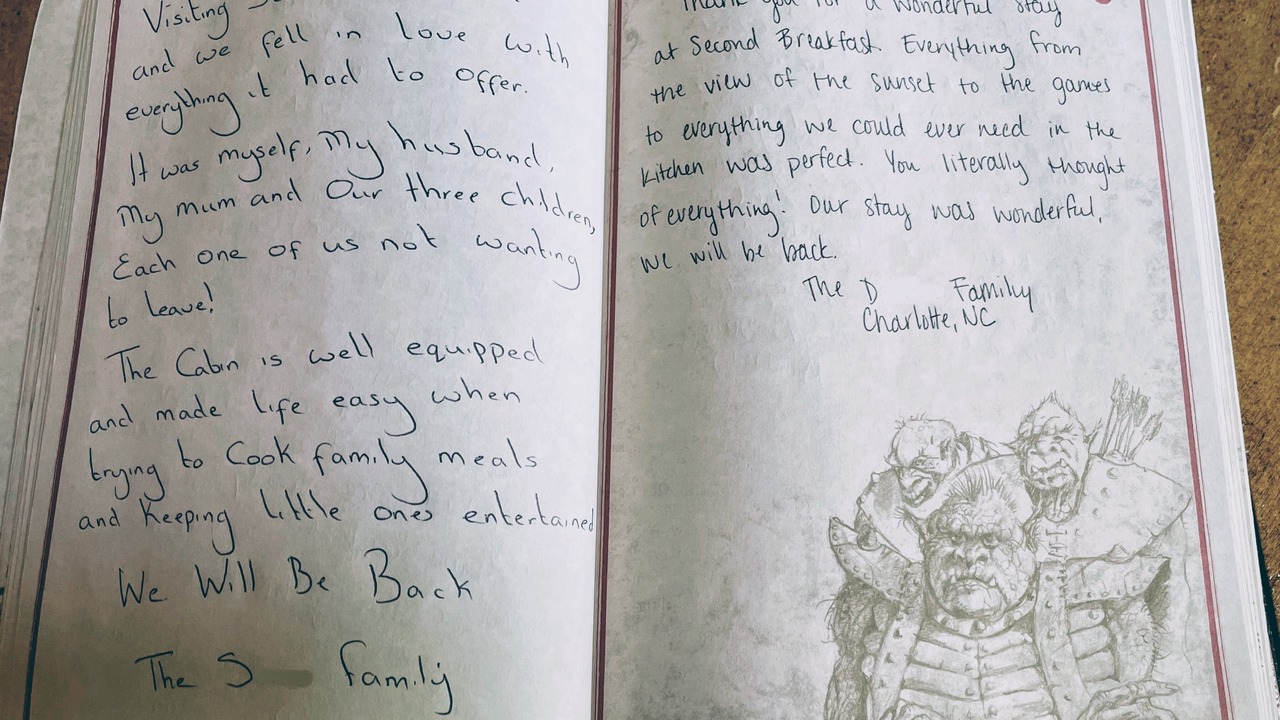 Visiting
and we fell in love with
everything it had to offer.
It was myself, My husband,
My mum and Our three children,
Each one of us not wanting
to leave!
The Cabin is well equipped
and made life easy when
trying to Cook family meals
and Keeping little ones entertained
We Will Be Back
The S family
Thank you for a wonderful stay
at Second Breakfast. Everything from
the view of the sunset to the games
to everything we could ever need in the
kitchen was perfect. You literally thought
of everything! Our stay was wonderful,
we will be back.
The D Family
Charlotte, NC